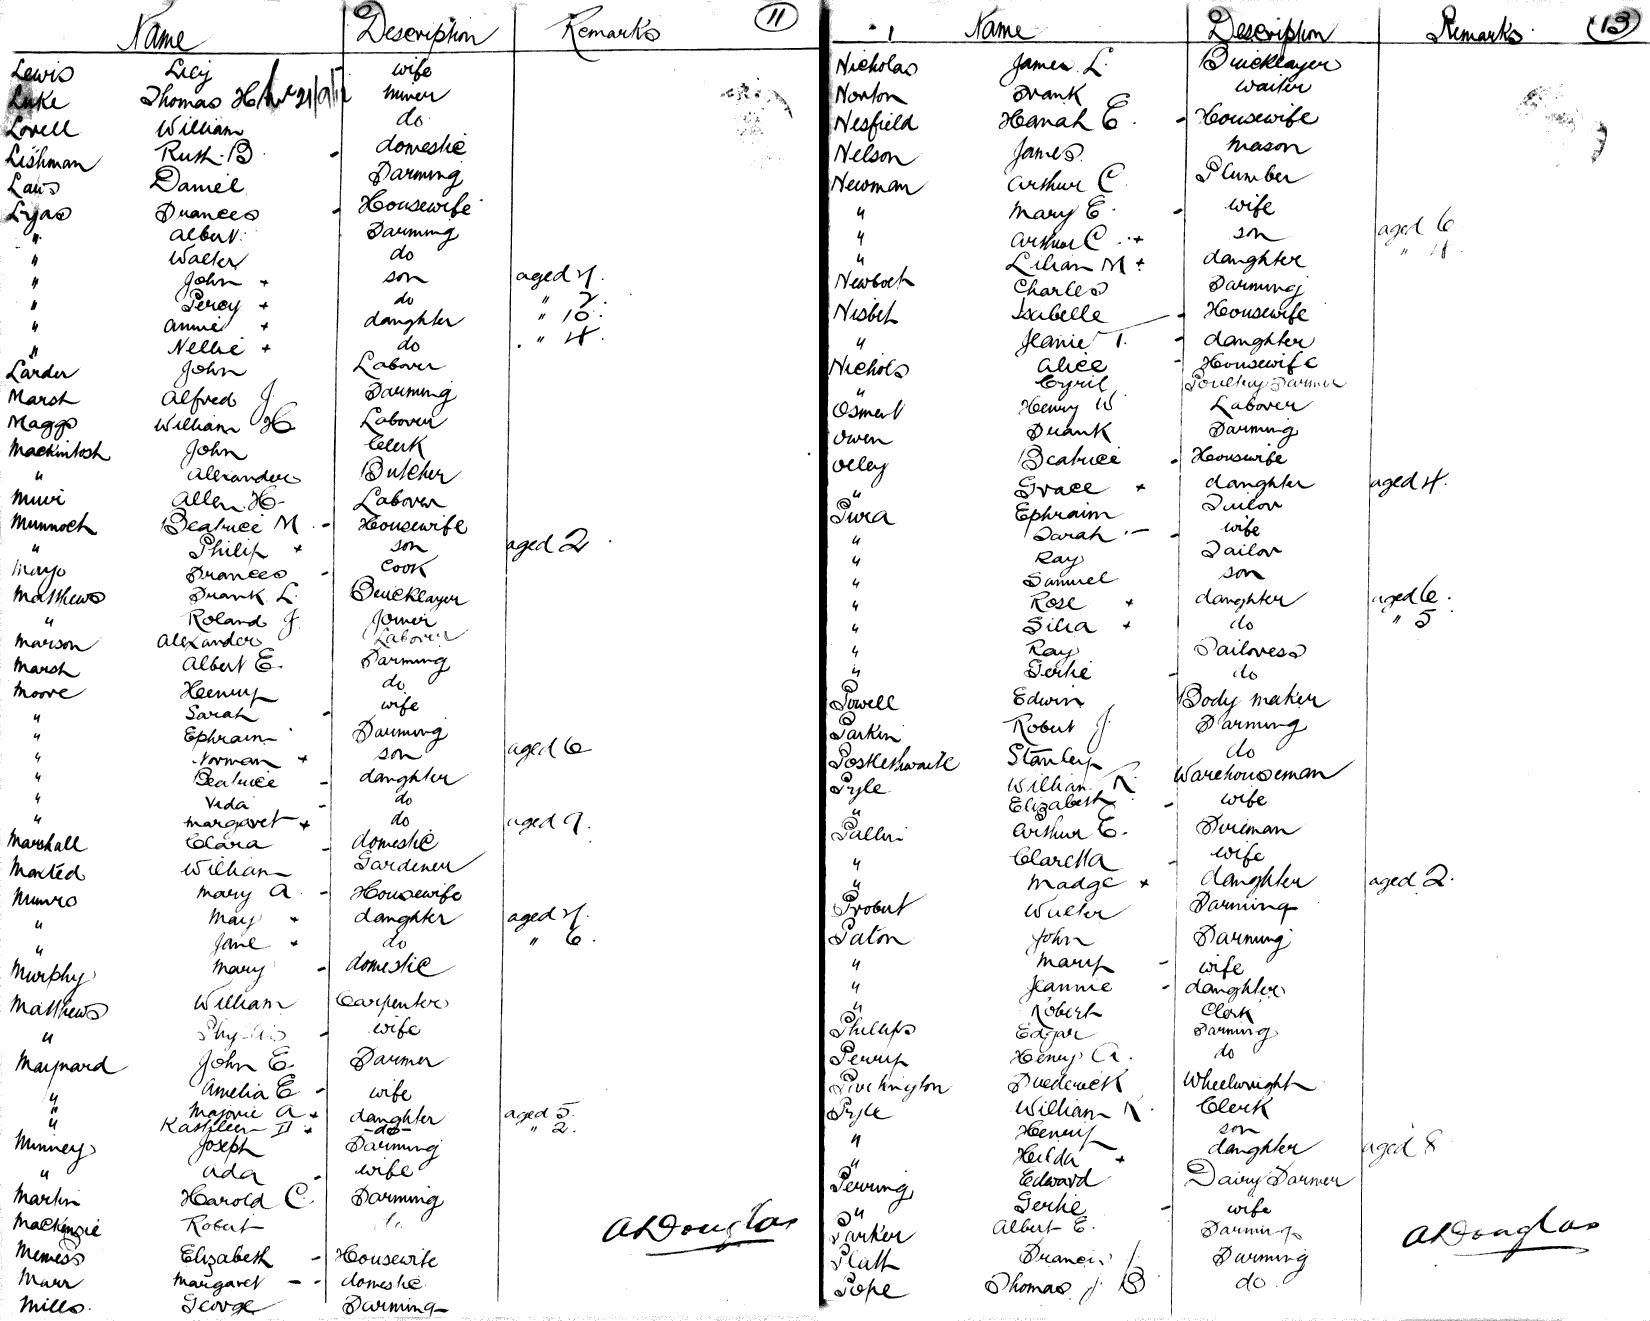 Name Description Remarks 11
Lewis Lily wife
Luke Thomas H miner
Lovell William do
Lishman Ruth B - domestic
Laws Daniel Farming
Lyas Frances - Housewife
" Albert Farming
" Walter do
" John + son aged 7.
" Percy + do " 2.
" Annie + daughter " 10.
" Nellie + do " 4.
Larder John Labourer
Marsh Alfred J. Farming
Maggs William H Labourer
Mackintosh John Clerk
" Alexander Butcher
Muir Allen H. Labourer
Munnoch Beatrice M - Housewife
" Philip + son aged 2
Mayo Frances - Cook
Matthews Frank L. Bricklayer
" Roland J. Joiner
Marson Alexander Labourer
Marsh Albert E. Farming
Moore Henry do
" Sarah - wife
" Ephraim Farming
" Norman + son aged 6
" Beatrice - daughter
" Vida - do
" Margaret + do aged 9.
Marshall Clara - domestic
Maxted William Gardener
Munro Mary A - Housewife
" May + daughter aged 7.
" Jane + do " 6.
Murphy Mary - domestic
Matthews William Carpenter
" Phyllis - wife
Maynard John E. Farmer
" Amelia E - wife
" Marjorie A + daughter aged 5.
" Kathleen D + -do- " 2.
Minney Joseph Farming
" Ada - wife
Martin Harold C. Farming
Mackenzie Robert do
Memess Elizabeth - Housewife
Marr Margaret - - domestic
Mills. George Farming
A L Douglas
Name Description Remarks 13
Nicholas James L. Bricklayer
Norton Frank waiter
Nesfield Hanah E. - Housewife
Nelson James. mason
Newman Arthur C. Plumber
" Mary E. - wife
" Arthur C. + son aged 6
" Lilian M + daughter " 4.
Newboet Charles Farming
Nisbet Isabelle - Housewife
" Jeanie T. - daughter
Nichols Alice - Housewife
" Cyril Poultry Farmer
Osment Henry W Labourer
Owen Frank Farming
Olley Beatrice - Housewife
" Grace + daughter aged 4.
Pura Ephraim Tailor
" Sarah - wife
" Ray Tailor
" Samuel son
" Rose + daughter aged 6.
" Silia + do " 5
" Ray Tailoress
" Gertie - do
Powell Edwin Body maker
Parkin Robert J. Farming
Postlethwaite Stanley do
Pyle William R Warehouseman
" Elizabeth - wife
Pallin Arthur E. Fireman
" Claretta - wife
" Madge + daughter aged 2.
Probert Walter Farming
Paton John Farming
" Mary - wife
" Jeannie - daughter
" Robert Clerk
Phillips Edgar Farming
Perry Henry A. do
Puckington Frederick Wheelwright
Pyle William R. Clerk
" Henry son
" Hilda + daughter aged 8
Perring Edward Dairy Farmer
" Gertie - wife
Parker Albert E. Farming
Platt Francis J. Farming
Pope Thomas J B do.
A L Douglas